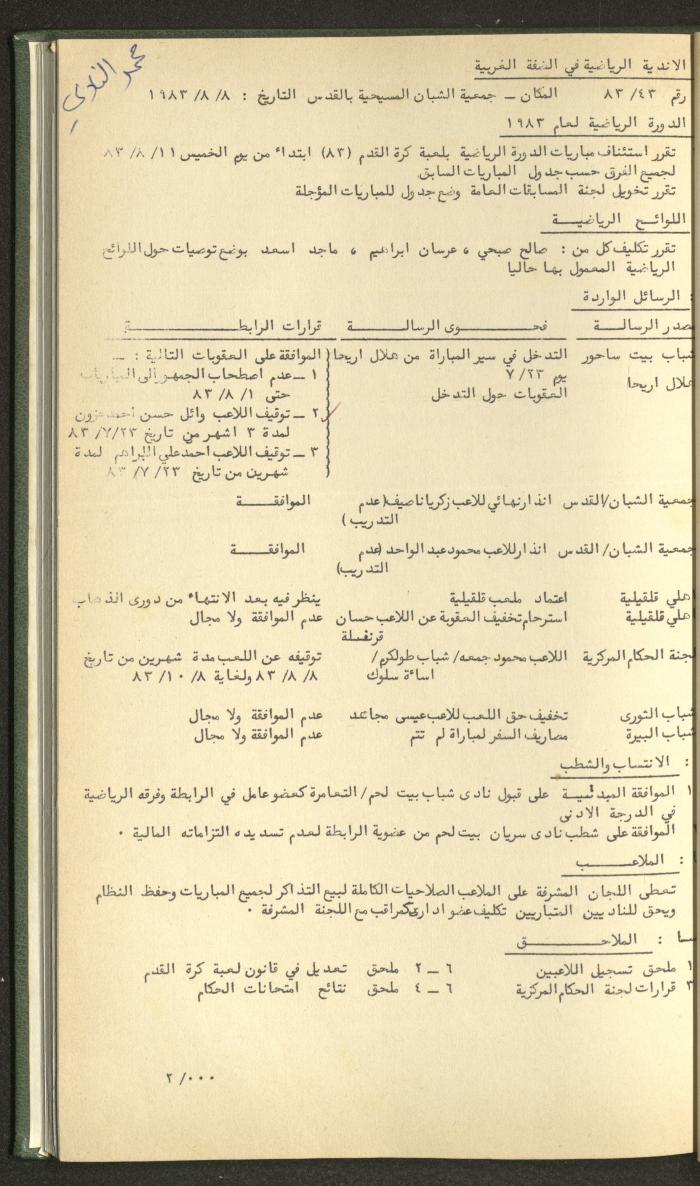 الاندية الرياضية في الضفة الغربية
رقم ٨٣/٤٣ المكان ــ جمعية الشبان المسيحية بالقدس التاريخ : ١٩٨٣ /٨ /٨
الدورة الرياضية لعام ١٩٨٣
تقرر استئناف مباريات الدورة الرياضية بلعبة كرة القدم (٨٣) ابتداء من يوم الخميس ٨٣ /٨ /١١
لجميع الفرق حسب جدول المباريات السابق
تقرر تخويل لجنة المسابقات العامة وضع جدول للمباريات المؤجلة
اللوائح الرياضية
تقرر تكليف كل من : صالح صبحي ، عرسان ابراهيم ، ماجد اسعد بوضع توصيات حول اللوائح
الرياضية المعمول بها حاليا
: الرسائل الواردة
صدر الرسالة فحوى الرسالة قرارات الرابطة
شباب بيت ساحور التدخل في سير المباراة من هلال اريحا الموافقة على العقوبات التالية : ــ
يوم ٧ /٢٣ ١ ــ عدم اصطحاب الجمهور الى المباريات
هلال اريحا العقوبات حول التدخل حتى ٨٣ /٨ /١
٢ ــ توقيف اللاعب وائل حسن احمد
لمدة ٣ اشهر من تاريخ ٨٣ /٧/٢٣
٣ ــ توقيف اللاعب احمد علي لمدة
شهرين من تاريخ ٨٣ /٧ /٢٣
جمعية الشبان/القدس انذار نهائي للاعب زكريا ناصيف (عدم الموافقة
التدريب )
جمعية الشبان/ القدس انذار للاعب محمود عبد الواحد (عدم الموافقة
التدريب)
هلي قلقيلية اعتماد ملعب قلقيلية ينظر فيه بعد الانتهاء من دورى الذهاب
هلي قلقيلية استرحام تخفيف العقوبة عن اللاعب حسان عدم الموافقة ولا مجال
لجنة الحكام المركزية اللاعب محمود جمعه/ شباب طولكرم/ توقيفه عن اللعب مدة شهرين من تاريخ
اساءة سلوك ٨٣ /٨ /٨ ولغاية ٨٣ /١٠ /٨
شباب الثورى تخفيف حق اللعب للاعب عيسى مجاهد عدم الموافقة ولا مجال
شباب البيرة مصاريف السفر لمباراة لم تتم عدم الموافقة ولا مجال
: الانتساب والشطب
١ الموافقة المبدئية على قبول نادى شباب بيت لحم/ التعامرة كعضو عامل في الرابطة وفرقه الرياضية
في الدرجة الادنى
الموافقة على شطب نادى سريان بيت لحم من عضوية الرابطة لعدم تسديده التزاماته المالية ٠
: الملاعب
تعطى اللجان المشرفة على الملاعب الصلاحيات الكاملة لبيع التذاكر لجميع المباريات وحفظ النظام
ويحق للناديين المتباريين تكليف عضو ادارى كمراقب مع اللجنة المشرفة ٠
سا : الملاحق
١ ملحق تسجيل اللاعبين ٦ ــ ٢ ملحق تعديل في قانون لعبة كرة القدم
٣ قرارات لجنة الحكام المركزية ٦ ــ ٤ ملحق نتائج امتحانات الحكام
٢ /٠٠٠